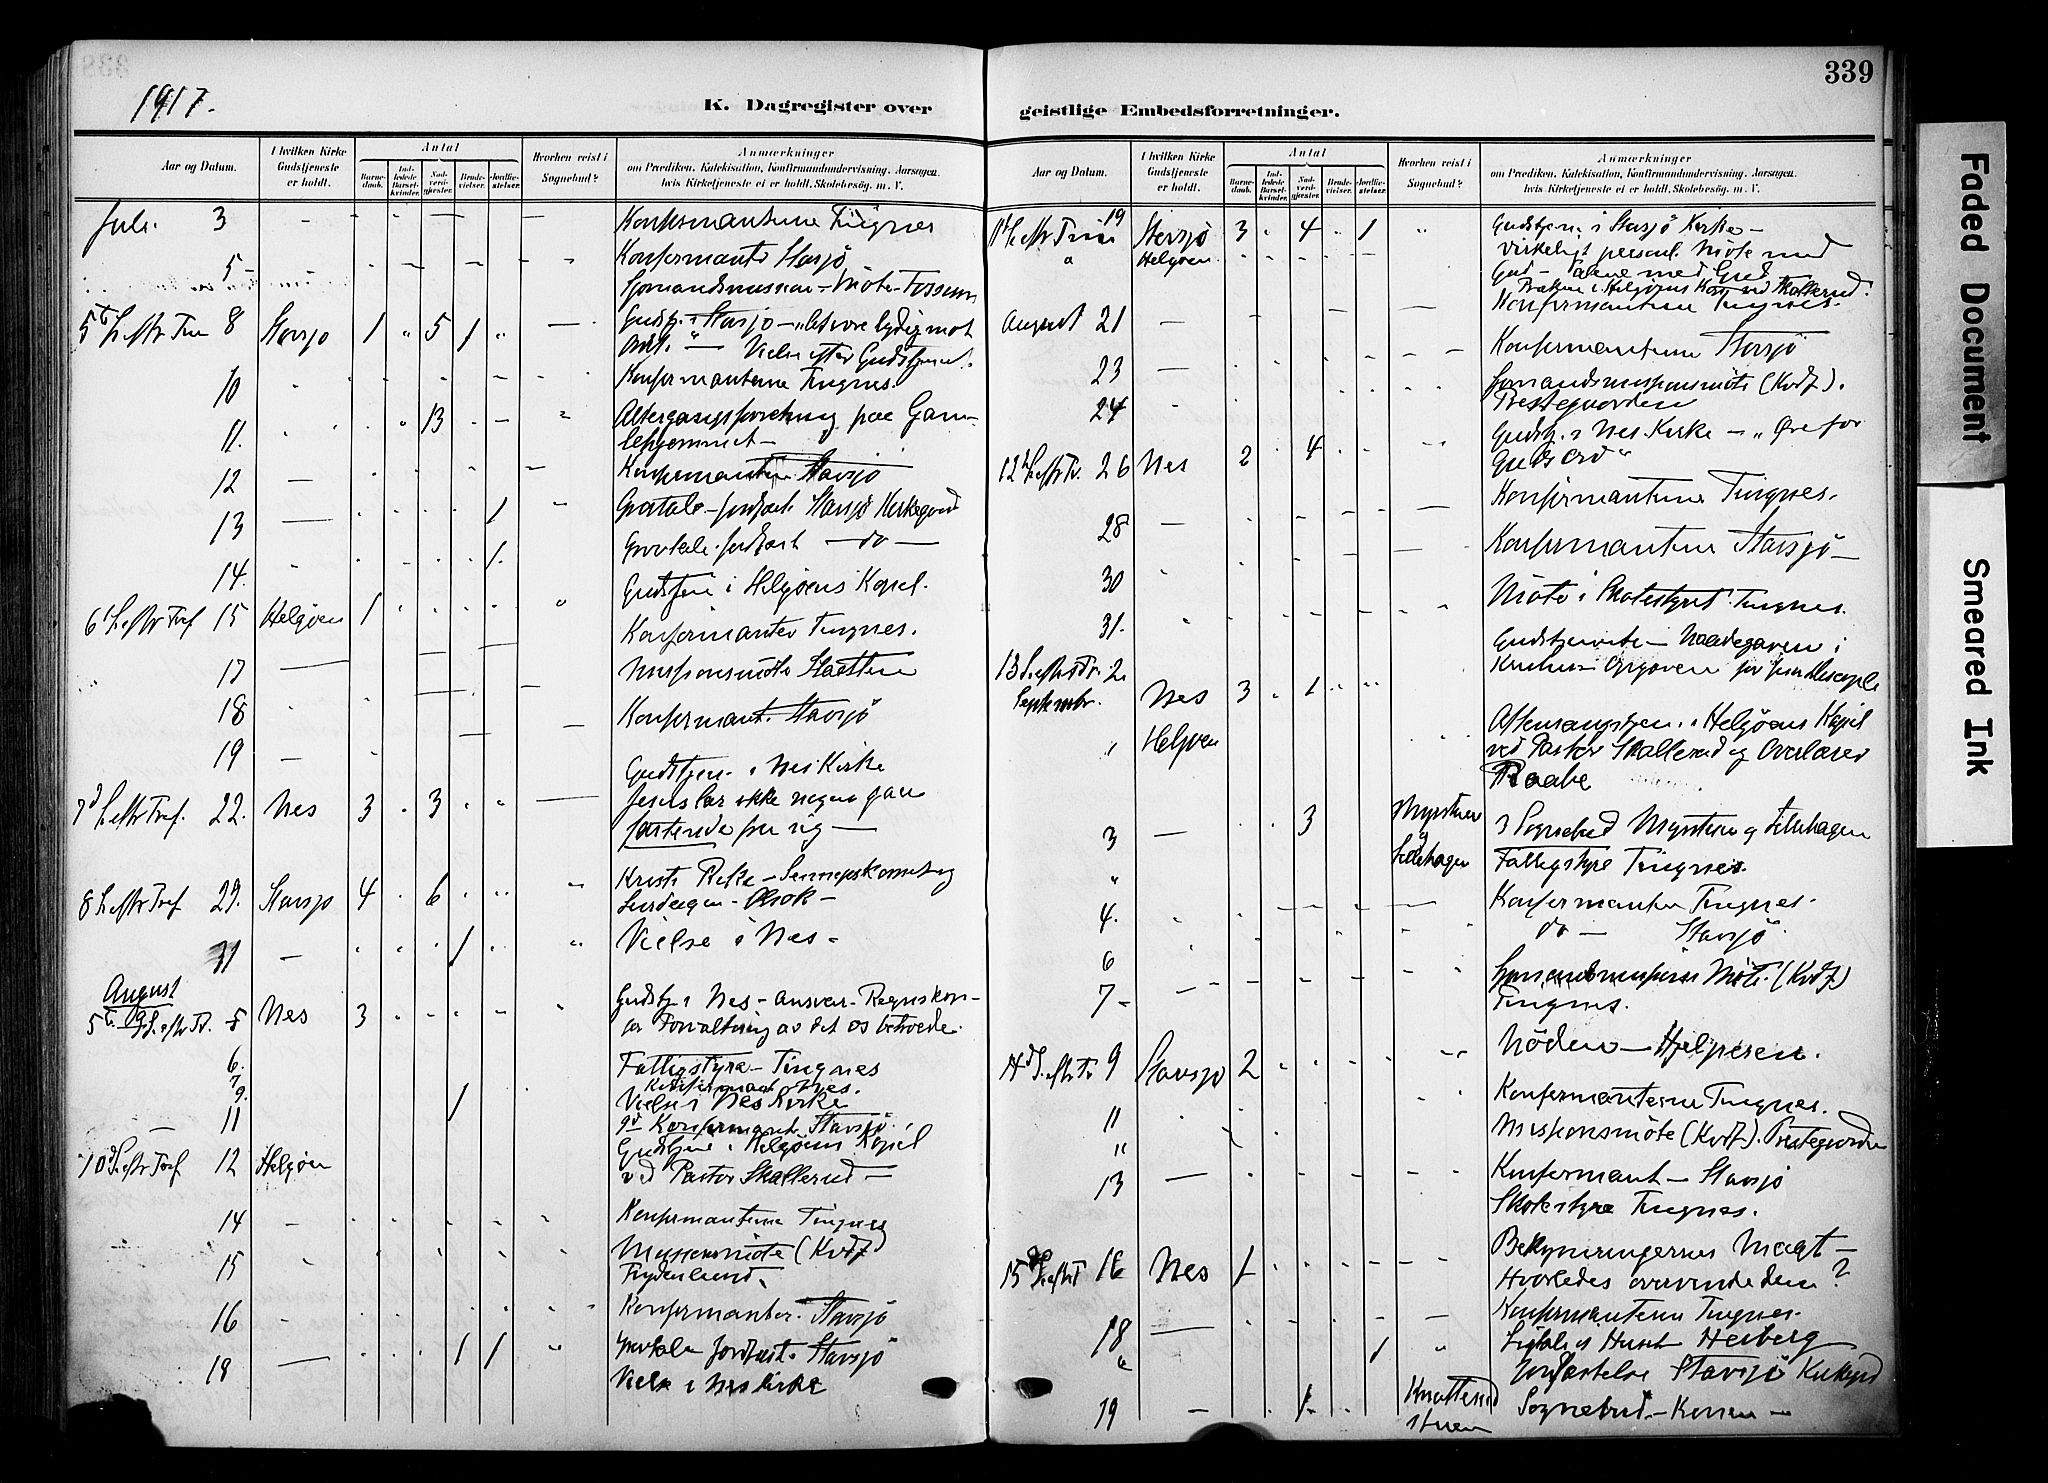 339
1917.
K. Dagregister over geistlige Embedsforretninger.
Aar og Datum.
I hvilken Kirke Gudstjeneste er holdt.
Antal
Barnedaab.
Indledede Barselkvinder.
Nadverdgjæster.
Brudevielser.
Jordfæstelser.
Hvorhen reist i Sognebud?
Anmærkninger
om Prædiken, Katekisation, Konfirmandundervisning, Aarsagen,
hvis Kirketjeneste ei er holdt, Skolebesög. m. V.
Juli. 3 Konfirmanterne Tingnes
5 Konfirmant Stavsjö
Sjömandsmission-Möte-Fossum
5te S. eftr Trin 8 Stavsjö 1 " 5 1 " Gudstj. i Stavsjö
ordet " — Vielse efter Gudstjenest.
10 Konfirmanterne Tingnes.
11. 13 Altergangsforretning paa Gam-
lehjemmet —
12 Konfirmanterne Stavsjö
13 1 Gravtale - jordfæst. Stavsjö Kirkegaard
14. 1. Gravtale. jordfæst — do —
6te S. eftr Tref 15 Helgöen 1 Gudstjen i Helgöens Kapel.
17 Konfirmanter Tingnes.
18 Missionsmöte
19 Konfirmant. Stavsjö
7d S. eftr Tref. 22. Nes 3 . 3 Gudstjen. i Nes Kirke
Jesus lar ikke nogen gaa
fastende fra sig —
8 S. eftr Tref 29. Stavsjö 4 . 6 Kristi Rike - Sennepskornet og
Surdeigen - Olsok —
31 — 1 Vielse i Nes -
August
5te 9 S. eftr Tr. 5 Nes 3 Gudstj i Nes - ansvar - Regnskap-
Forvaltning av det os betroede.
6. Fattigstyre - Tingnes
7 Konfirmant Nes.
9. 1 Vielse i Nes Kirke
11 Konfirmant. Stavsjö.
10d S. eftr Tref 12 Helgöen Gudstjen i Helgöens Kapel
ved Pastor Skallerud —
14 Konfirmanterne Tingnes
15 Missionsmöte (Kvdf)
Frydenlund.
16 Konfirmanter. Stavsjö
18 — 1 1 Gravtale Jordfæst. Stavsjö
Vielse i Nes Kirke
Aar og Datum.
I hvilken Kirke Gudstjeneste er holdt.
Antal
Barnedaab.
Indledede Barselkvinder.
Nadverdgjæster.
Brudevielser.
Jordfæstelser.
Hvorhen reist i Sognebud?
Anmærkninger
om Prædiken, Katekisation, Konfirmandundervisning, Aarsagen,
hvis Kirketjeneste ei er holdt. Skolebesög. m. V.
11te S. eftr Trin 19 Stavsjö 3 . 4 . 1 Gudstjen. i Stavsjö Kirke —
Helgöen virkeligt personl. Möte med
Gud — Talene med Gud
Præken i Helgöens Kap. ved Skallerud.
August 21 — Konfirmanterne Tingnes.
23 — Konfirmanterne Stavsjö
24 Sjömandsmissionsmöte (Kvdf).
Prestegaarden
12te S. eftr Tr. 26 Nes 2 4 Gudstj. i Nes Kirke — "Öre for
Guds Ord"
28 — Konfirmanterne Tingnes.
30 Konfirmanterne Stavsjö —
31. Möte i Skolestyret. Tingnes.
13 S. eftr Tr. 2. Gudstjeneste — Naadegaven i
September. Nes 3 . 1 Opgaven for
" Helgöen Aftensangstjen. i Helgöens Kapel
ved Pastor Skallerud og Overlærer
Raabe
3 — 3 Myrstuen og Lillehagen i Sognebud Myrstuen og Lillehagen
" Fattigstyre Tingnes.
4. Konfirmanter Tingnes.
6 do — Stavsjö.
7 - Sjömandsmissions Möte. (Kvdf)
Tingnes.
14d S. eftr Tr 9 Stavsjö 2 Nöden — Hjelperen.
11 Konfirmanterne Tingnes.
" Missionsmöte (Kvdf). Prestegaarden
13 — Konfirmant — Stavsjö
Skolestyre Tingnes.
15de S. eftr T 16 Nes 1 Bekymringernes Magt —
Hvorledes overvinde dem?
18 — Konfirmanterne Tingnes.
" 1 Ligtale i Huset Heiberg
Jordfæstelse Stavsjö Kirkegrd
19 - 1. Knatterud stuen Sognebud. — Konen —
Faded Document
Smeared Ink